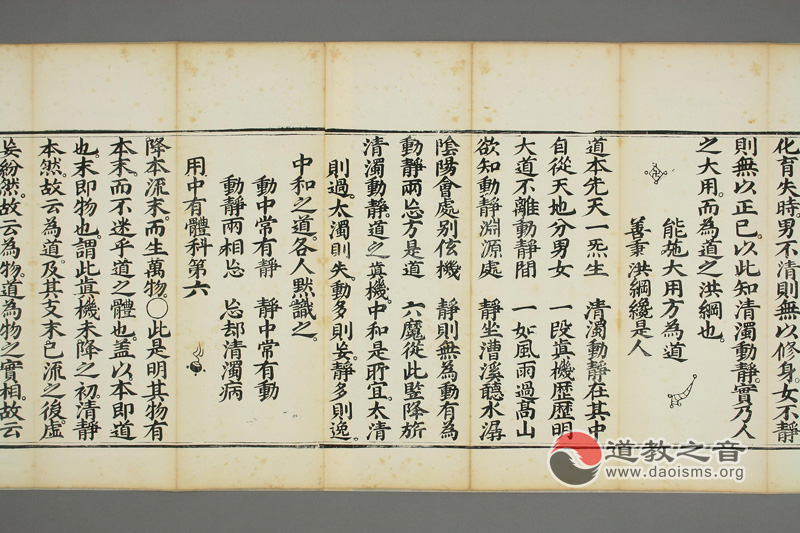 化育失時男不清則無以修身女不靜
則無以正己。以此知清濁動靜。實乃人
之大用。而為道之洪綱也。
能施大用方為道
善秉洪綱纔是人
道本先天一炁生 清濁動靜在其中
自從天地分男女 一段真機歷歷明
大道不離動靜間 一如風雨過高山
欲知動靜淵源處 靜坐漕溪聽水潺
陰陽會處别伭機 靜則無為動有為
動靜兩忘方是道 六魔從此監降旂
清濁動靜。道之真機。中和是所宜。太清
則過。太濁則失。動多則妄。靜多則逸。
中和之道。各人默識之。
動中常有靜 靜中常有動
動靜兩相忘 忘却清濁病
用中有體科第六
降本流末。而生萬物。〇此是明其物有
本末。而不迷乎道之體也。盖以本即道
也。末即物也。謂此真機未降之初。清靜
本然。故云為道。及其支末已流之後。虛
妄紛然。故云為物。道為物之實相。故云
道教之音
www.daoisms.org